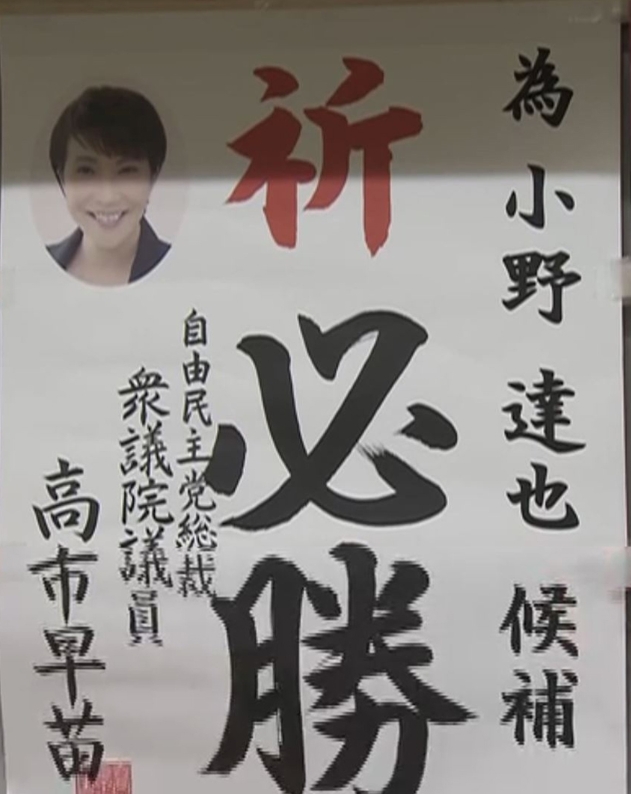 為 小野 達也 候補
祈必勝
自由民主党総裁
衆議院議員
高市早苗